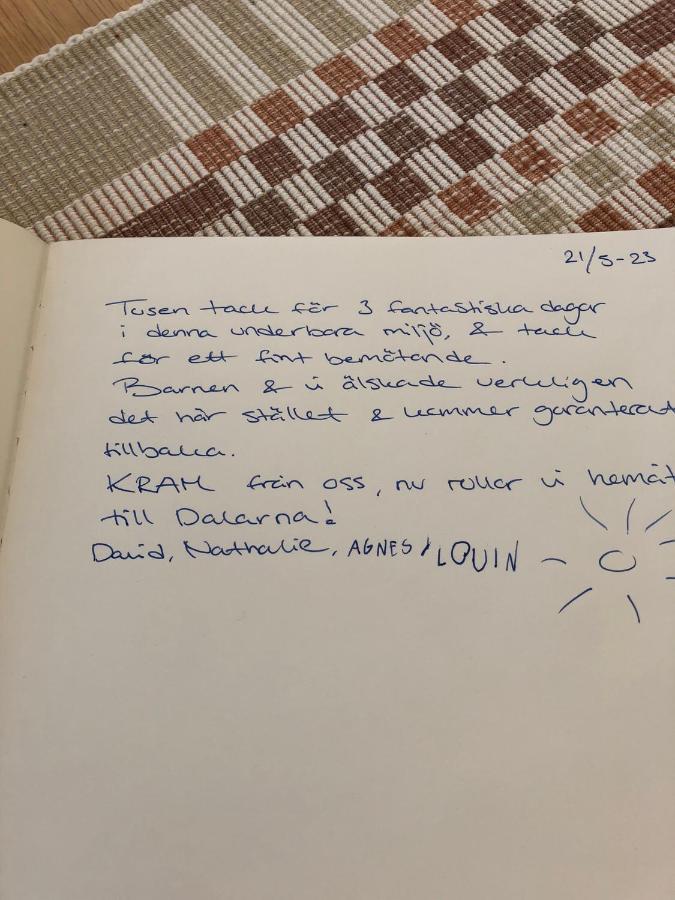 21/5-23
Tusen tack för 3 fantastiska dagar
i denna underbara miljö, & tack
för ett fint bemötande.
Barnen & vi älskade verkligen
det här stället & kommer garanterat
tillbaka.
KRAM från oss, nu rullar vi hemåt
till Dalarna!
David, Nathalie, AGNES / LOUIN